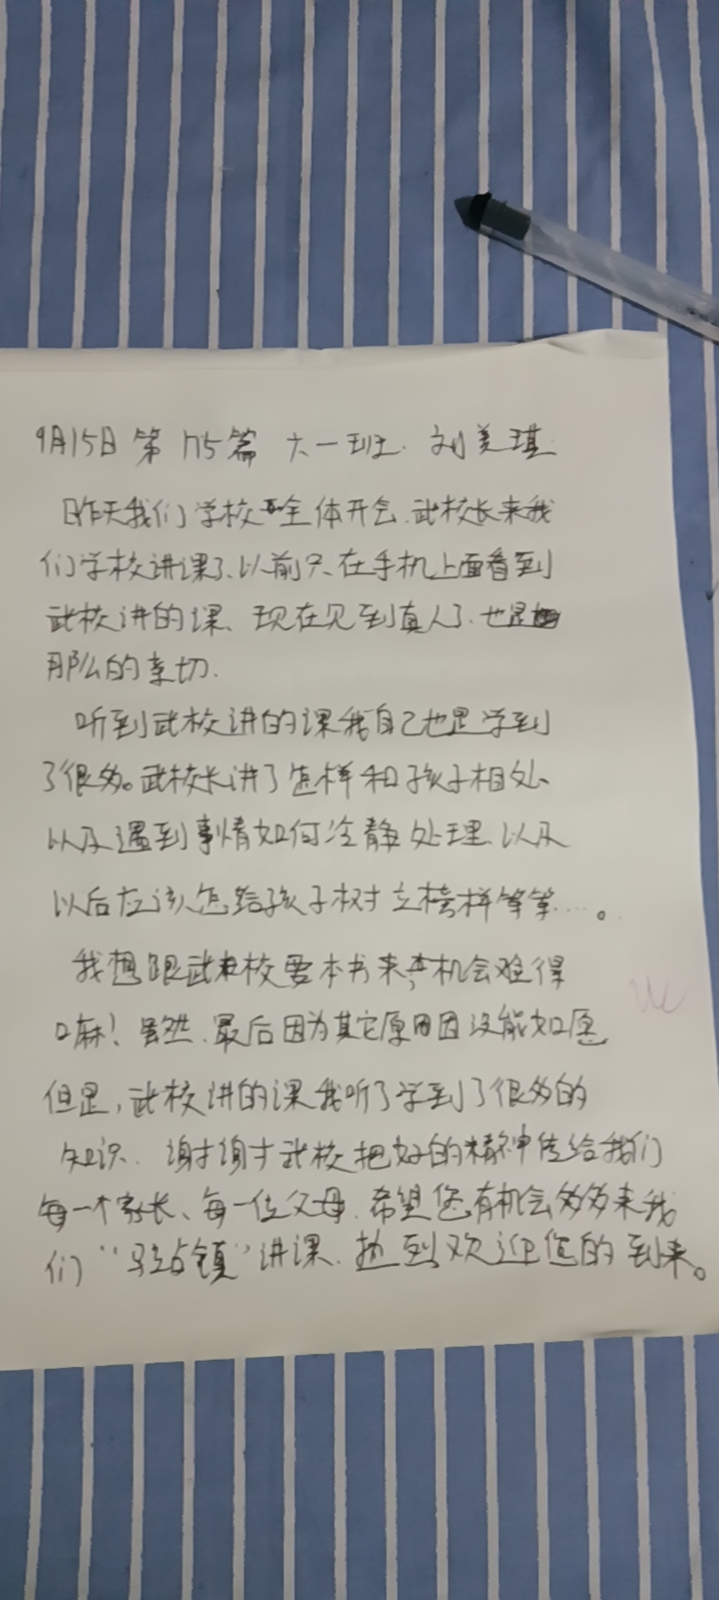 9月15日 第175篇 六一班. 刘美琪
昨天我们学校全体开会.武校长来我
们学校讲课了、以前只在手机上面看到
武校讲的课、现在见到真人了.也是
那么的亲切.
听到武校讲的课我自己也是学到
了很多。武校长讲了怎样和孩子相处、
以及遇到事情如何冷静处理、以及
以后应该怎给孩子树立榜样等等……。
我想跟武校要本书来,机会难得
嘛!虽然.最后因为其它原因没能如愿
但是,武校讲的课我听了学到了很多的
知识.谢谢武校把好的精神传给我们
每一个家长、每一位父母.希望您有机会多多来我
们“驿站镇”讲课.热烈欢迎您的到来。